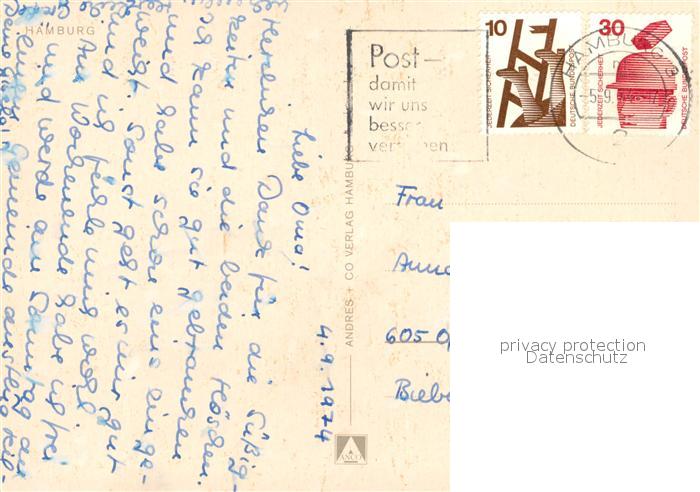 HAMBURG
4.9.1974
Liebe Oma!
Herzlichen Dank für die Süßig-
keiten und die beiden Höschen.
Ich kann sie gut gebrauchen
und habe schon eins einge-
weiht. Sonst geht es mir gut
und ich fühle mich wohl.
Am Wochenende habe ich frei
und werde am Samstag
Gemeinde
ANDRES + CO VERLAG HAMBURG
ANCO
Post-
damit
wir uns
besser
verstehen
10
JEDERZEIT SICHERHEIT
DEUTSCHE BUNDESPOST
30
JEDERZEIT SICHERHEIT
DEUTSCHE BUNDESPOST
HAMBURG
-5.9.
Frau
Anna
605 O
Biebe
privacy protection
Datenschutz